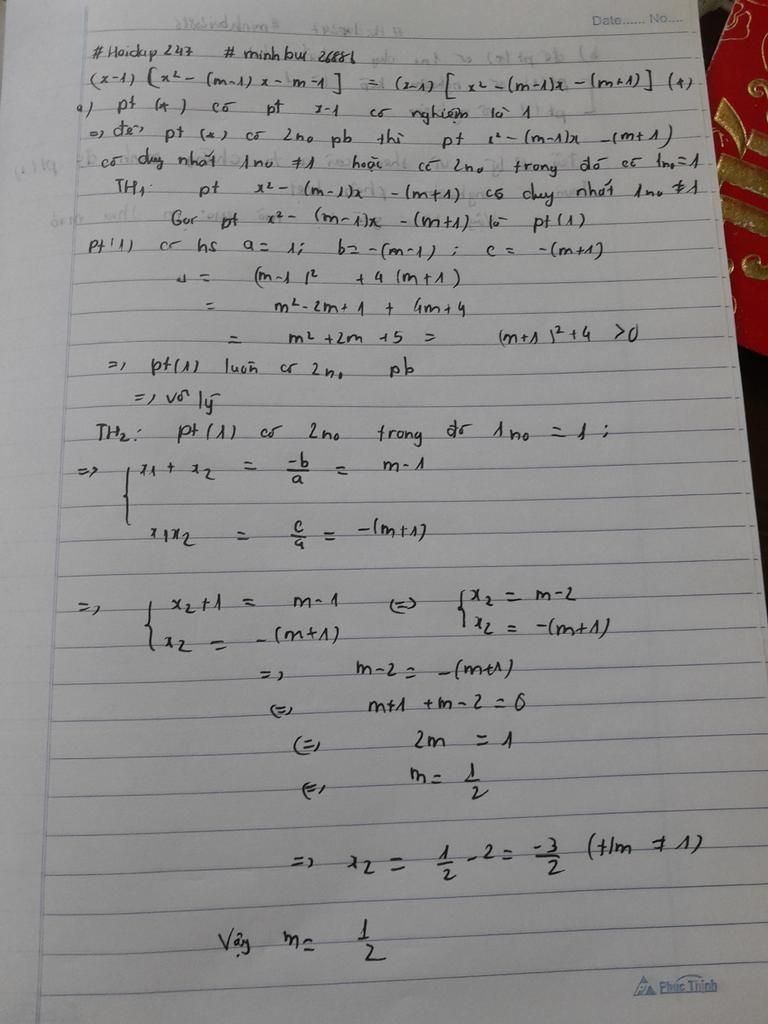 Date...... No....
#Hoidap247 #minhbui26886
(x-1) [x² - (m-1)x - m - 1] = (x-1) [x² - (m-1)x - (m+1)] (*)
a) pt (*) có pt x-1 có nghiệm là 1
=> để pt (*) có 2no pb thì pt x² - (m-1)x - (m+1)
có duy nhất 1no ≠1 hoặc có 2no trong đó có 1no=1
TH1: pt x² - (m-1)x - (m+1) có duy nhất 1no ≠1
Gọi pt x² - (m-1)x - (m+1) là pt (1)
pt(1) có hs a=1; b=-(m-1); c = -(m+1)
= (m-1)² + 4(m+1)
= m² - 2m + 1 + 4m + 4
= m² + 2m + 5 = (m+1)² + 4 >0
=> pt(1) luôn có 2no pb
=> vô lý
TH2: pt(1) có 2no trong đó 1no = 1;
=> { x1 + x2 = -b/a = m-1
x1x2 = c/a = -(m+1)
=> { x2+1 = m-1 <=> { x2 = m-2
x2 = -(m+1) x2 = -(m+1)
=> m-2 = -(m+1)
<=> m+1 + m-2 = 0
<=> 2m = 1
<=> m = 1/2
=> x2 = 1/2 - 2 = -3/2 (t/m ≠ 1)
Vậy m = 1/2
Phúc Thịnh